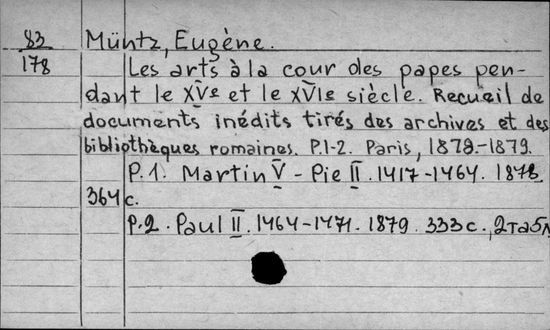 83
178
Müntz, Eugène.
Les arts à la cour des papes pen-
dant le XVe et le XVIe siècle. Recueil de
documents inédits tirés des archives et des
bibliothèques romaines. P.1-2. Paris, 1878-1879.
P.1. Martin V - Pie II. 1417-1464. 1878
364 c.
P.2. Paul II. 1464-1471. 1879. 333 c., 2 табл